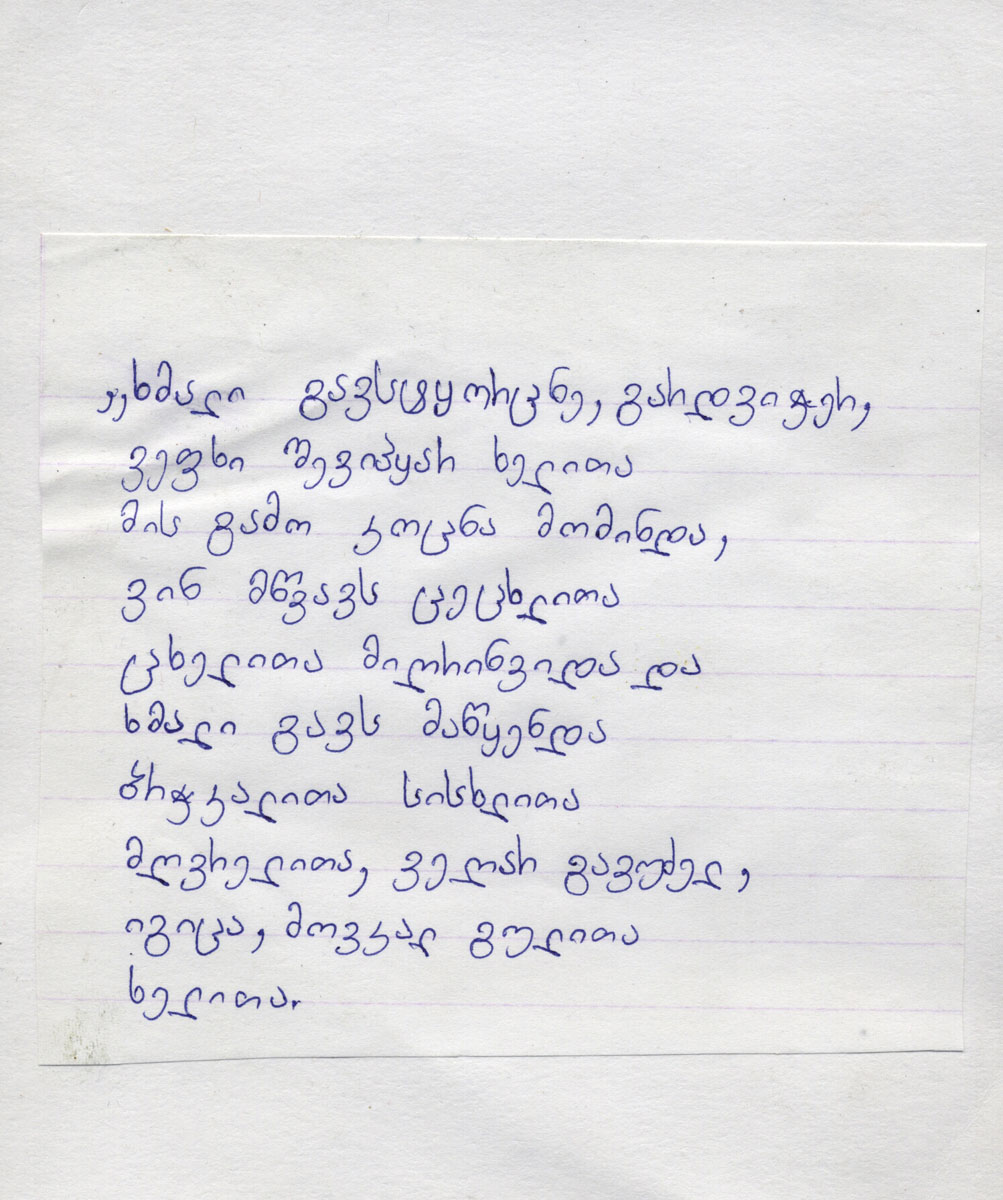 „ხმალი გავსტყორცნე, გარდვიჭერ,
ვეფხი შევიპყარ ხელითა
მის გამო კოცნა მომინდა,
ვინ მწვავს ცეცხლითა
ცხელითა მიღრინვიდა და
ხმალი გავს მაწყენდა
ბრჭკალითა სისხლითა
მღვრელითა, ველარ გავუძელ,
იგიცა, მოვკალ გულითა
ხელითა.